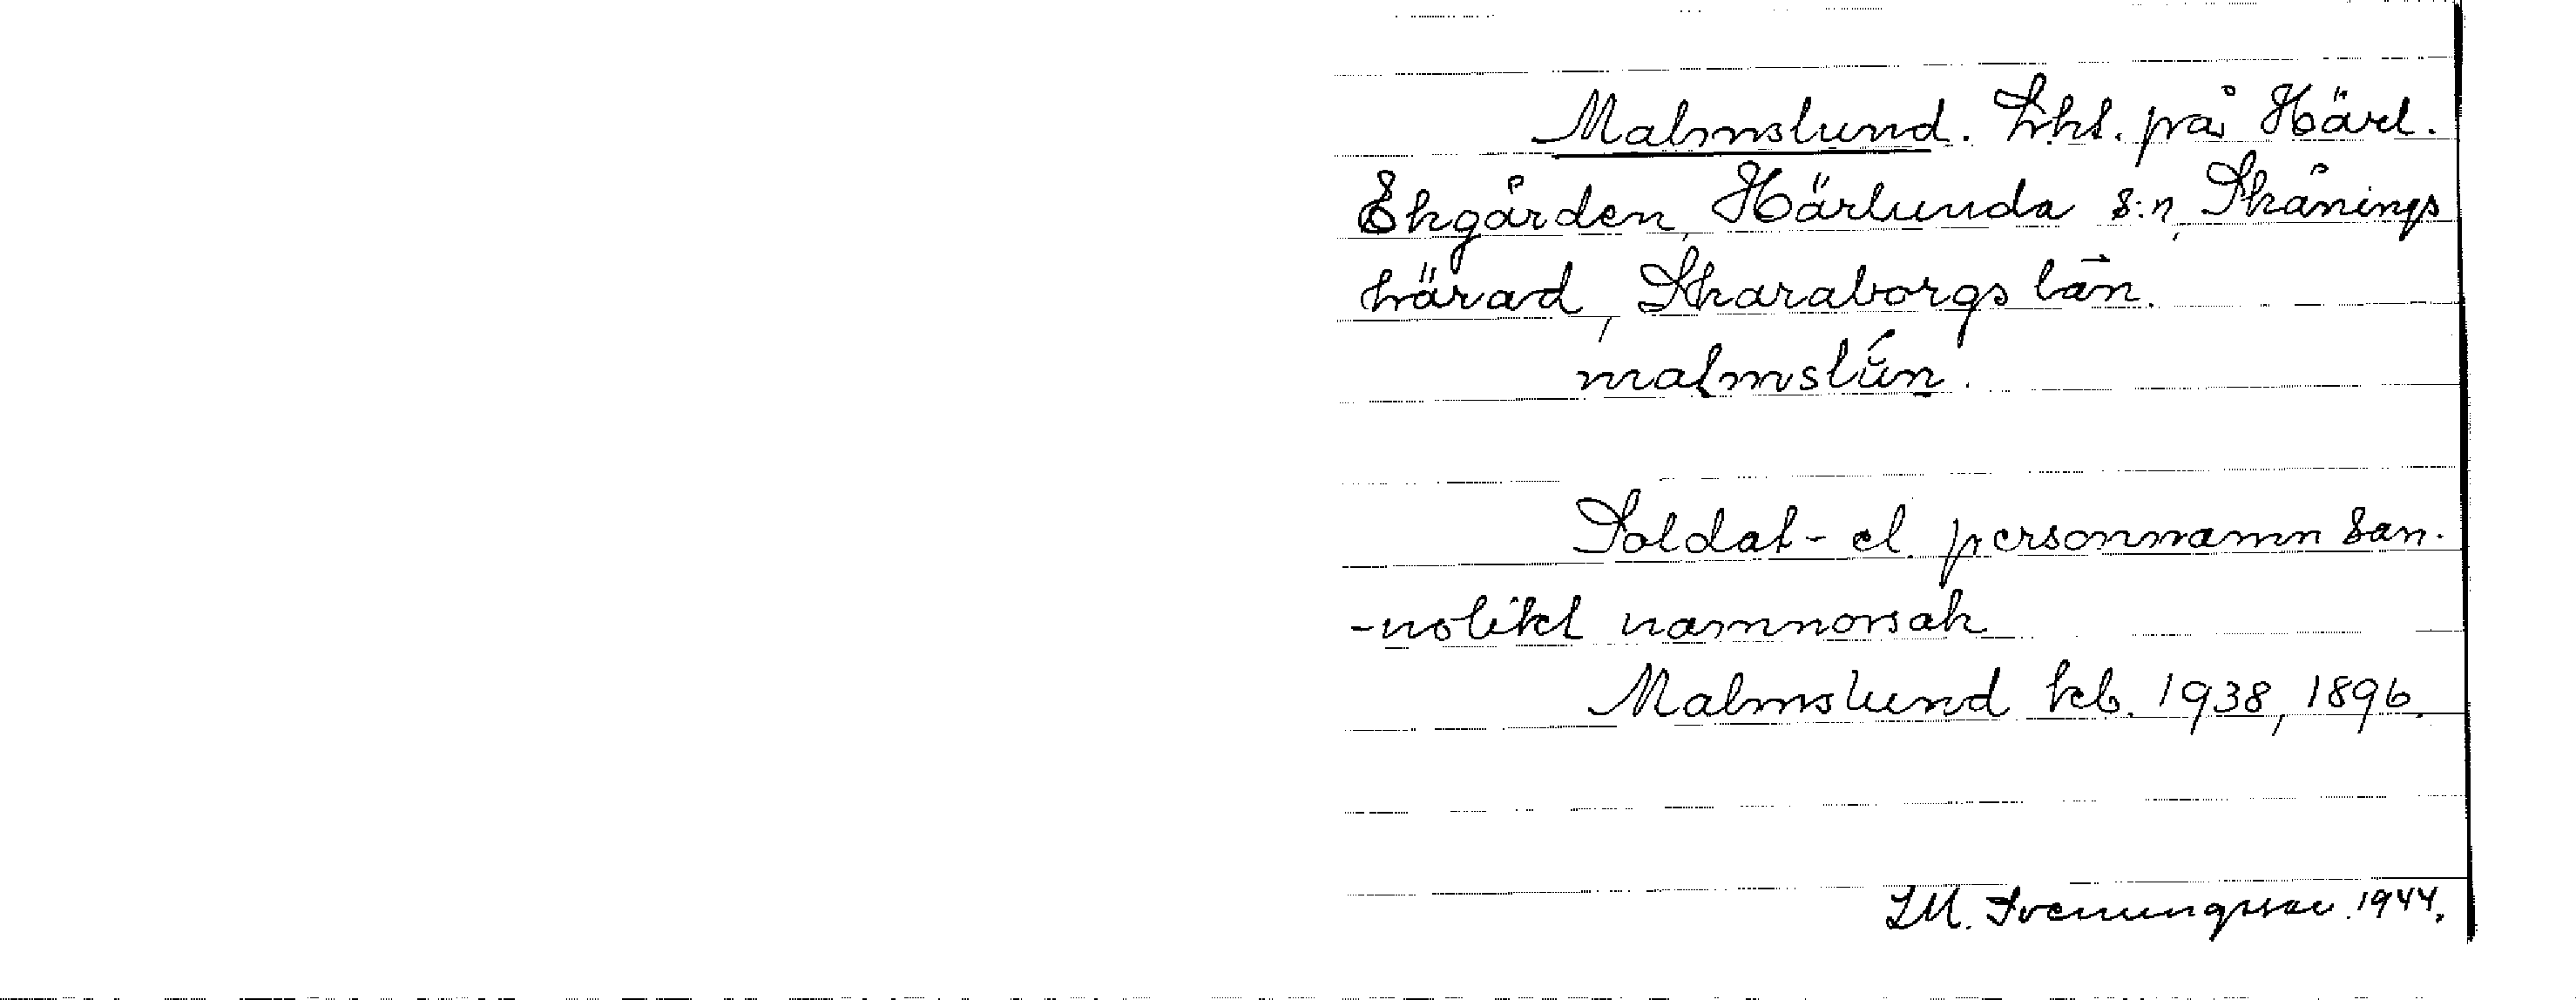 Malmslund. Lht. på Härl.
Ekgården, Härlunda s:n, Skånings
härad, Skaraborgs län.
malmslŭ́n.
Soldat- el. personnamn san-
-nolikt namnorsak
Malmslund kb. 1938, 1896.
I.M. Svenungsson 1944.